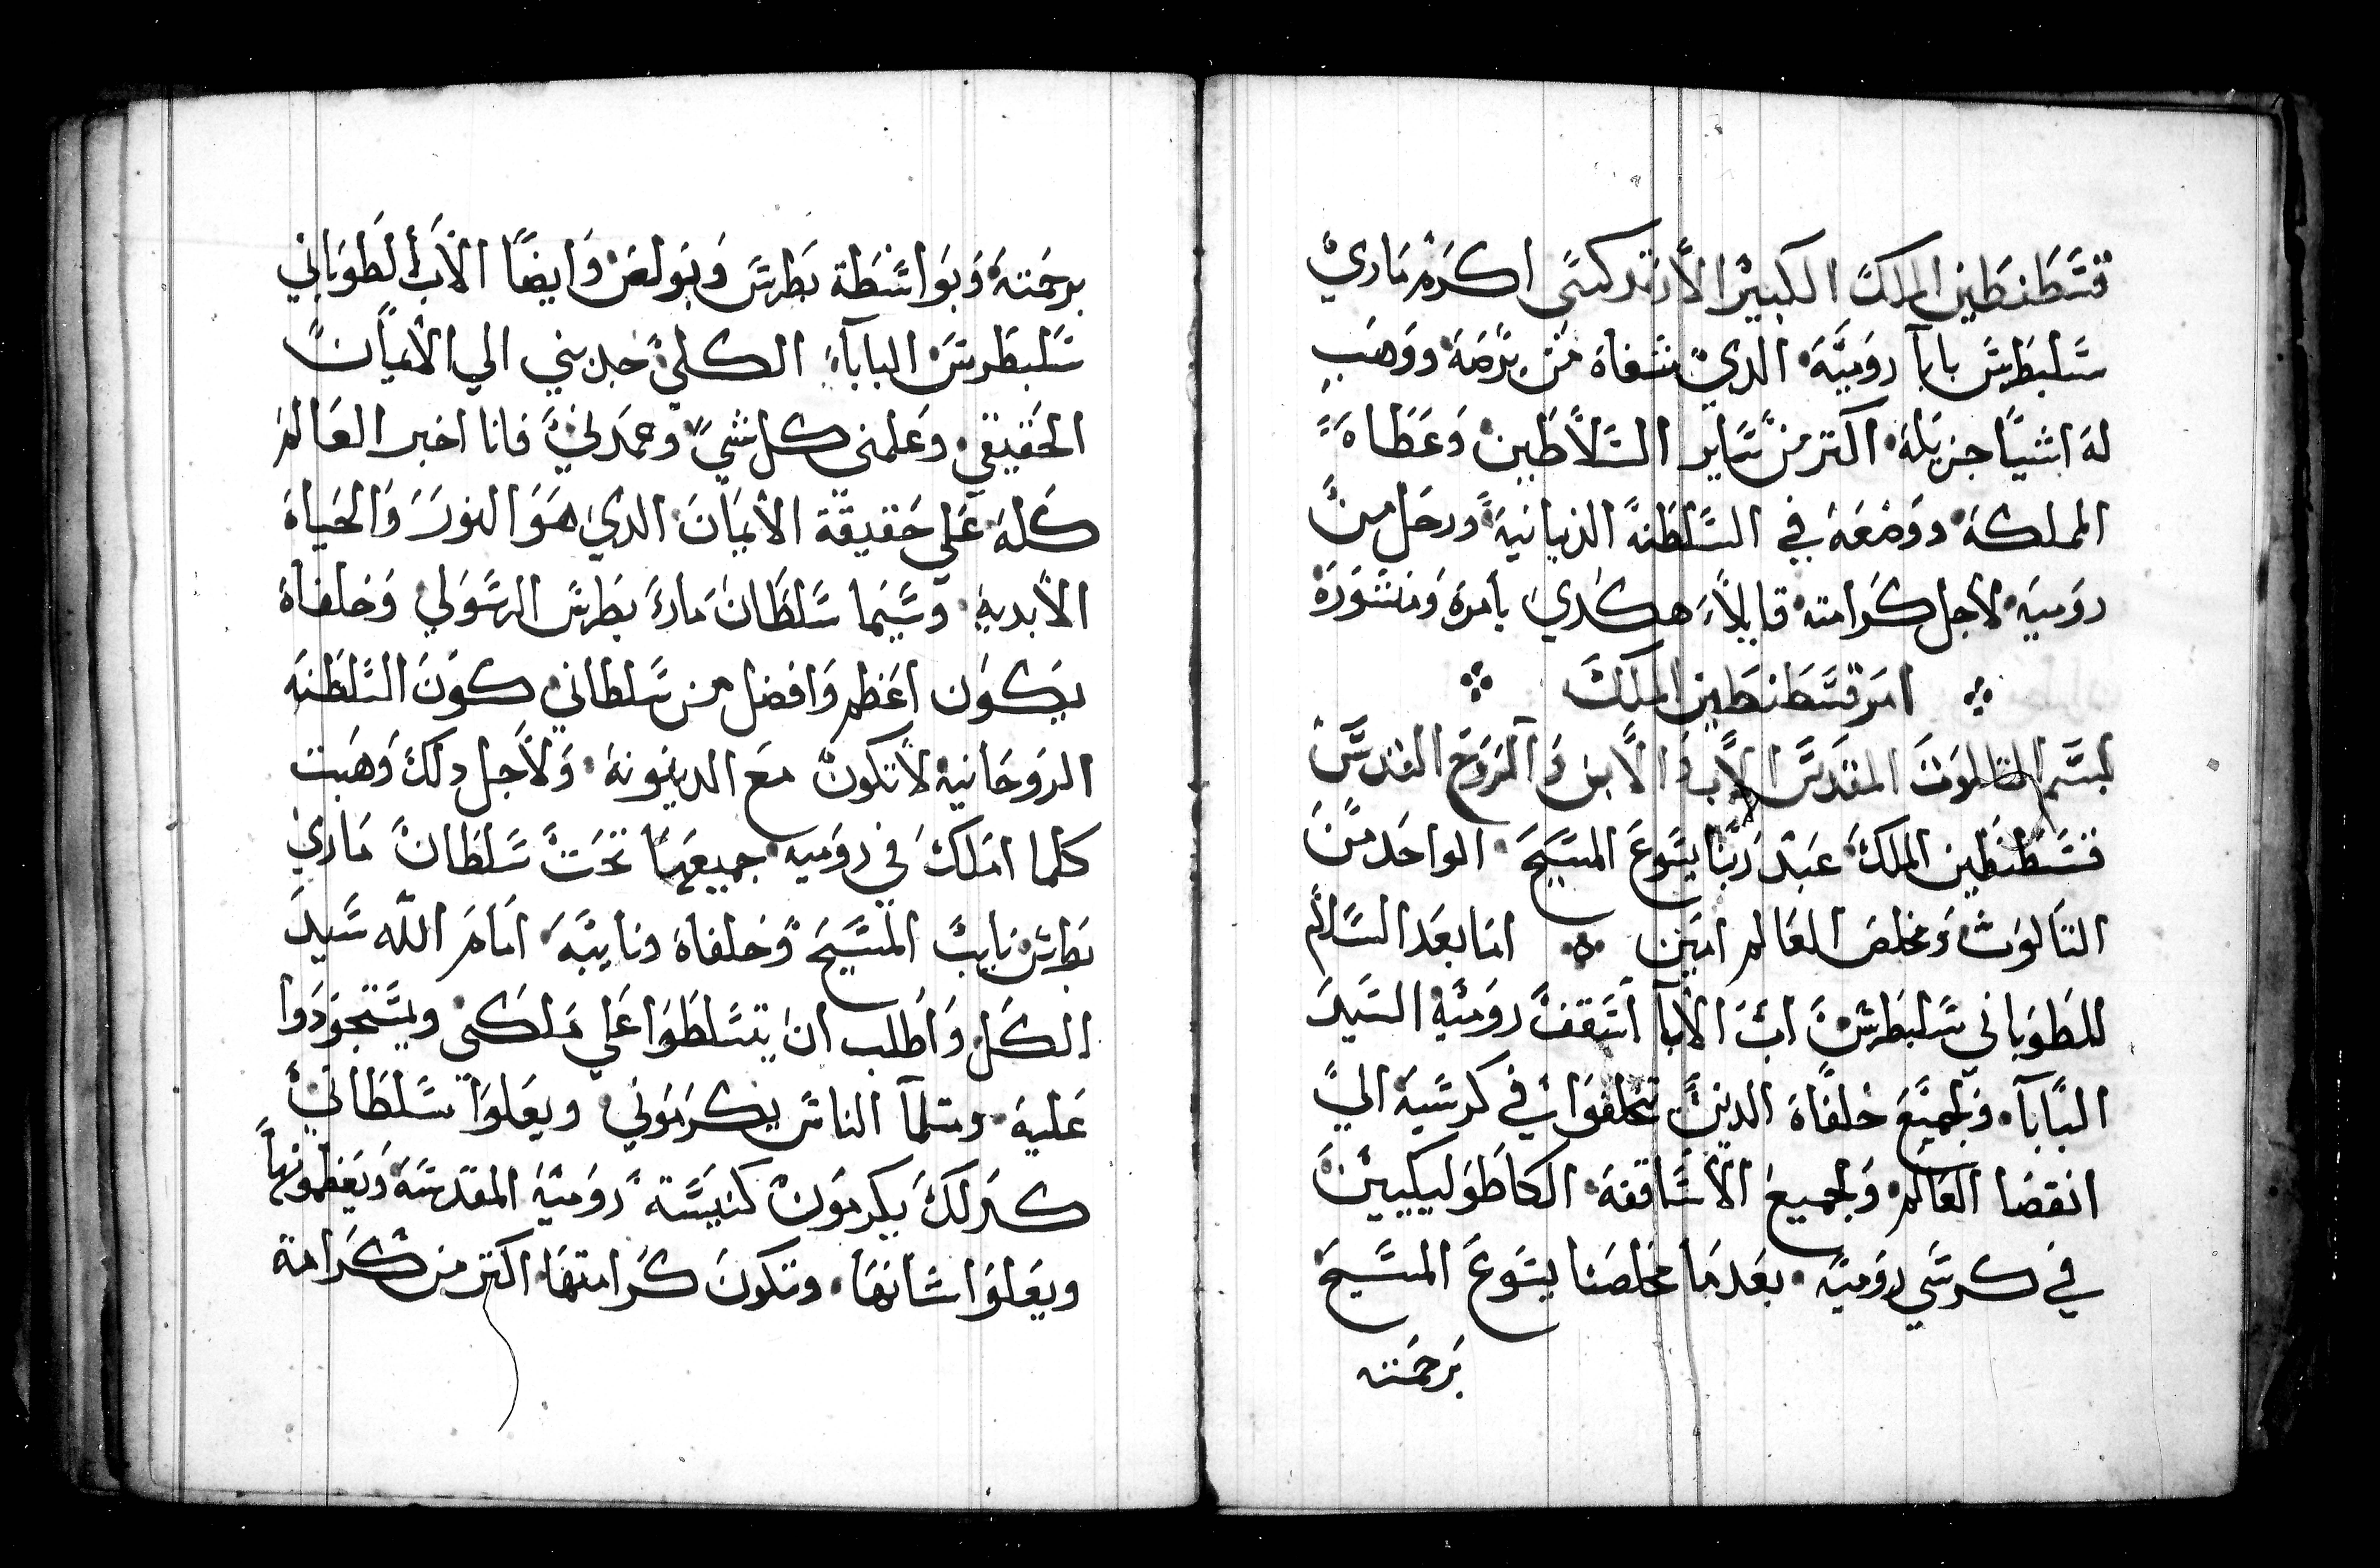 قسطنطين الملك الكبير الارتدكسى اكرم ماري
سلبطرس بابا رومية الدي شفاه من برصه ووهب
له اشيا جزيله اكتر من ساير السلاطين وعطاه
المملكه ووضعه في السلطنة الزبانية ورحل من
رومية لاجل كرامته قايلا هكدي بامره ومنشوره
امر قسطنطين الملك
بسم التالوت المقدس الاب والابن والروح القدس
قسطنطين الملك عبد ربنا يسوع المسيح الواحد من
التالوت ومخلص العالم امين اما بعد السلام
للطوباني سلبطرس اب الابا اسقف رومية السيد
البابا ولجميع خلفاه الدين تخلفوا في كرسيه الي
انقضا العالم ولجميع الاساقفه الكاطوليكيين
في كرسي رومية بعدما مخلصنا يسوع المسيح
برحمته
برحمته وبواسطة بطرس وبولص وايضا الاب الطوباني
سلبطرس البابا الكلي جدبني الي الاميان
الحقيقي وعلمنى كل شي وعمدني فانا اخبر العالم
كله على حقيقة الايمان الدي هو النور والحياة
الابدية وسيما سلطان مار بطرس الرسولي وخلفاه
يكون اعظم وافضل من سلطاني كون السلطنه
الروحانية لاتكون مع الدينونة ولاجل دلك وهبت
كلما املك في رومية جميعها تحت سلطان ماري
بطرس نايب المسيح وخلفاه ونايبه امام الله سيد
الكل واطلب ان يتسلطوا على ملكي ويستجودوا
عليه ومتلما الناس يكرموني ويعلوا سلطاني
كدلك يكرمون كنيسة رومية المقدسة ويعظمونها
ويعلوا شانها وتكون كرامتها اكتر من كرامة